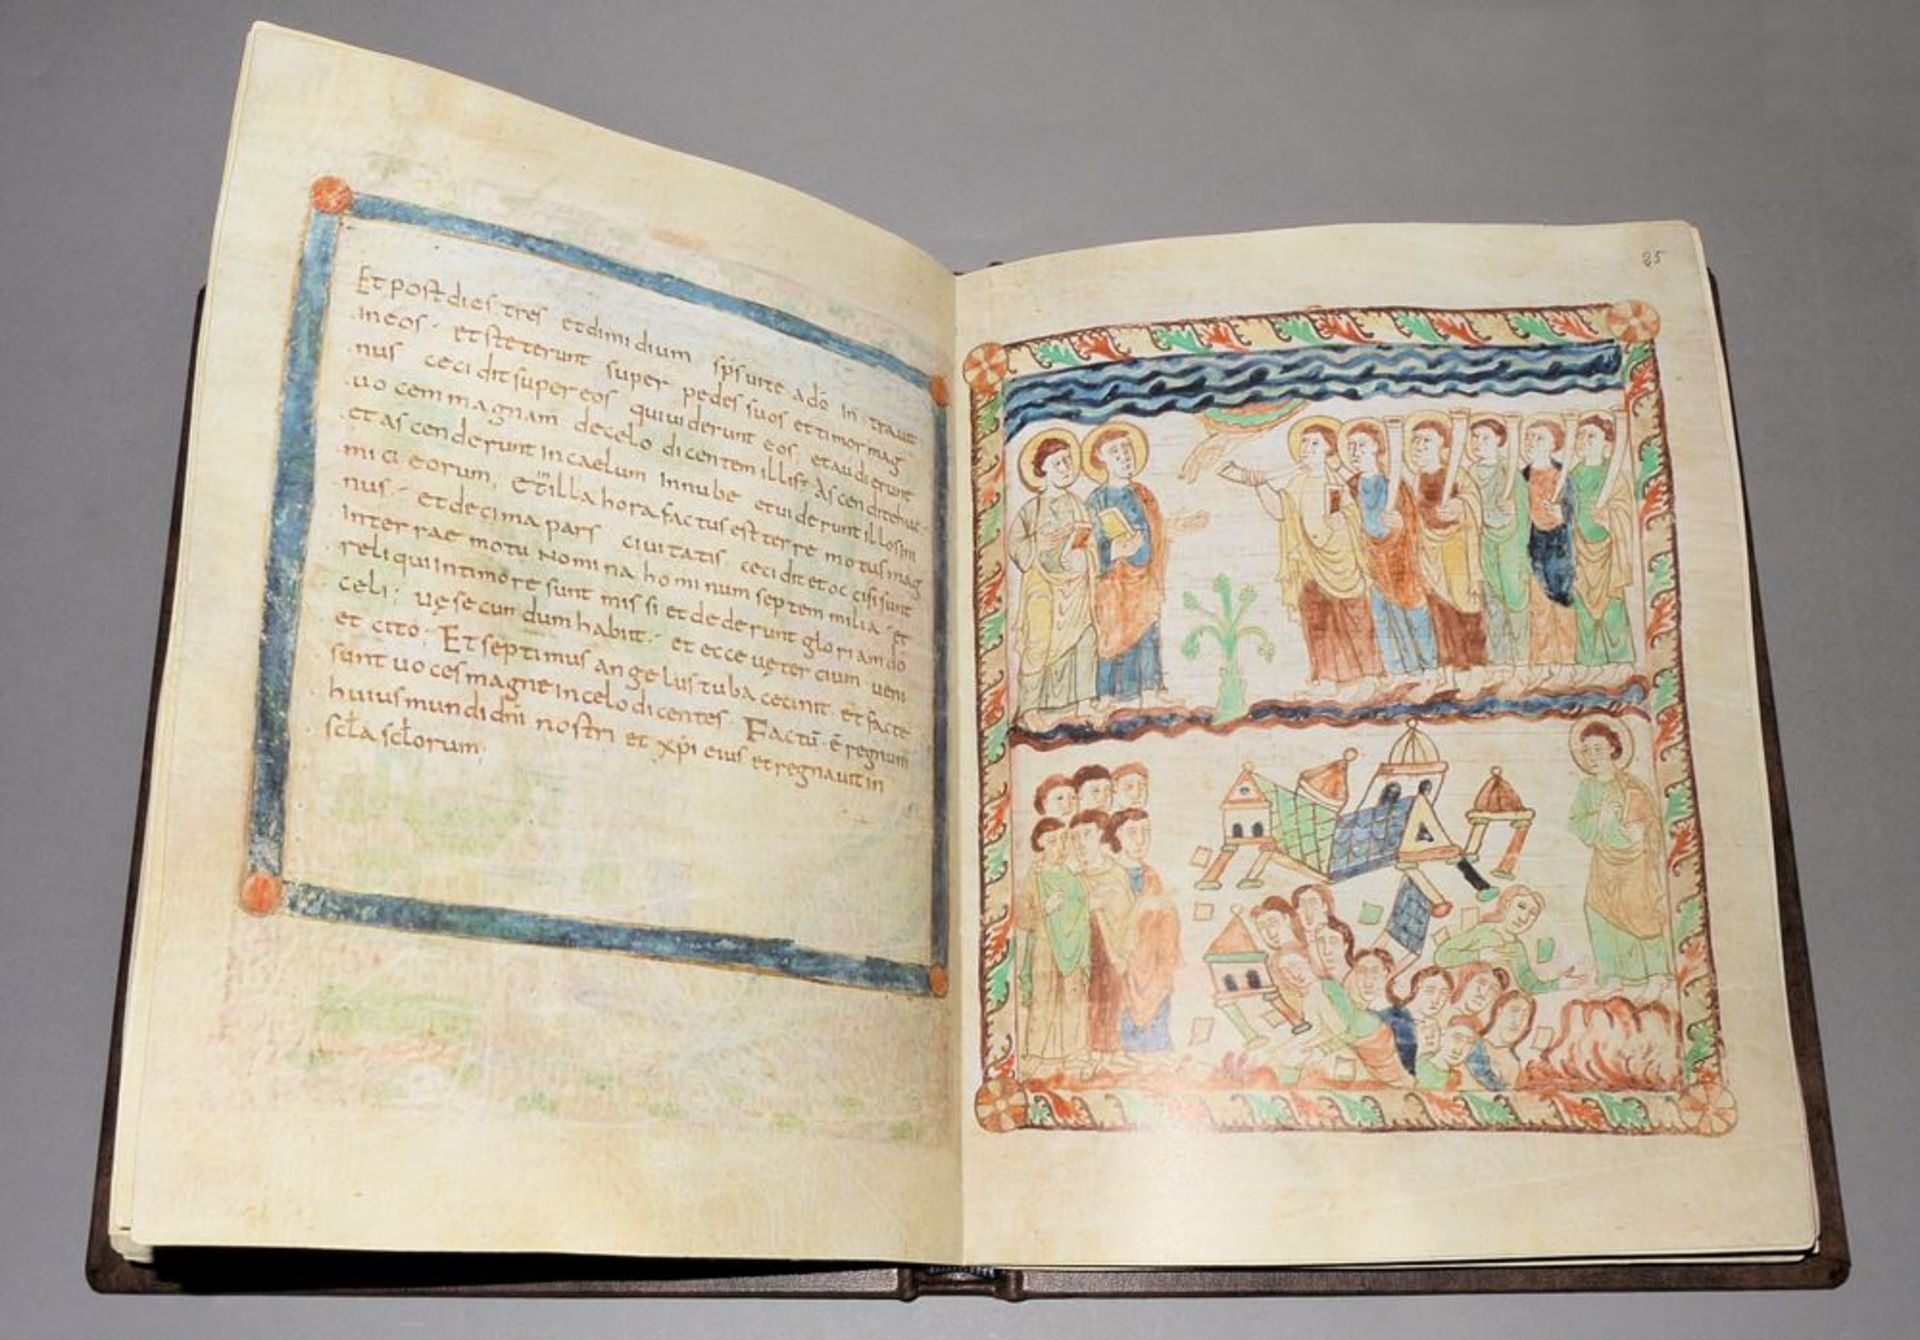 Et post dies tres et dimidium sp̄s uite a dō in·trauit
in eos· et steterunt super pedes suos et timor mag
nus cecidit super eos qui uiderunt eos; et audierunt
uocem magnam de celo dicentem illis· Ascendite huc·
et ascenderunt in caelum in nube et uiderunt illos ini
mici eorum, Et in illa hora factus est terre motus mag
nus· et decima pars ciuitatis cecidit et occisi sunt
in terrae motu nomina hominum septem milia· et
reliqui in timore sunt missi et dederunt gloriam dō
celi; uę secundum habiit· et ecce uę tercium ueni
et cito· Et septimus angelus tuba cecinit· et facte
sunt uoces magne in celo dicentes· Factū ē regnum
huius mundi dn̄i nostri et xp̄i eius et regnauit in
scl̄a scl̄orum·
85